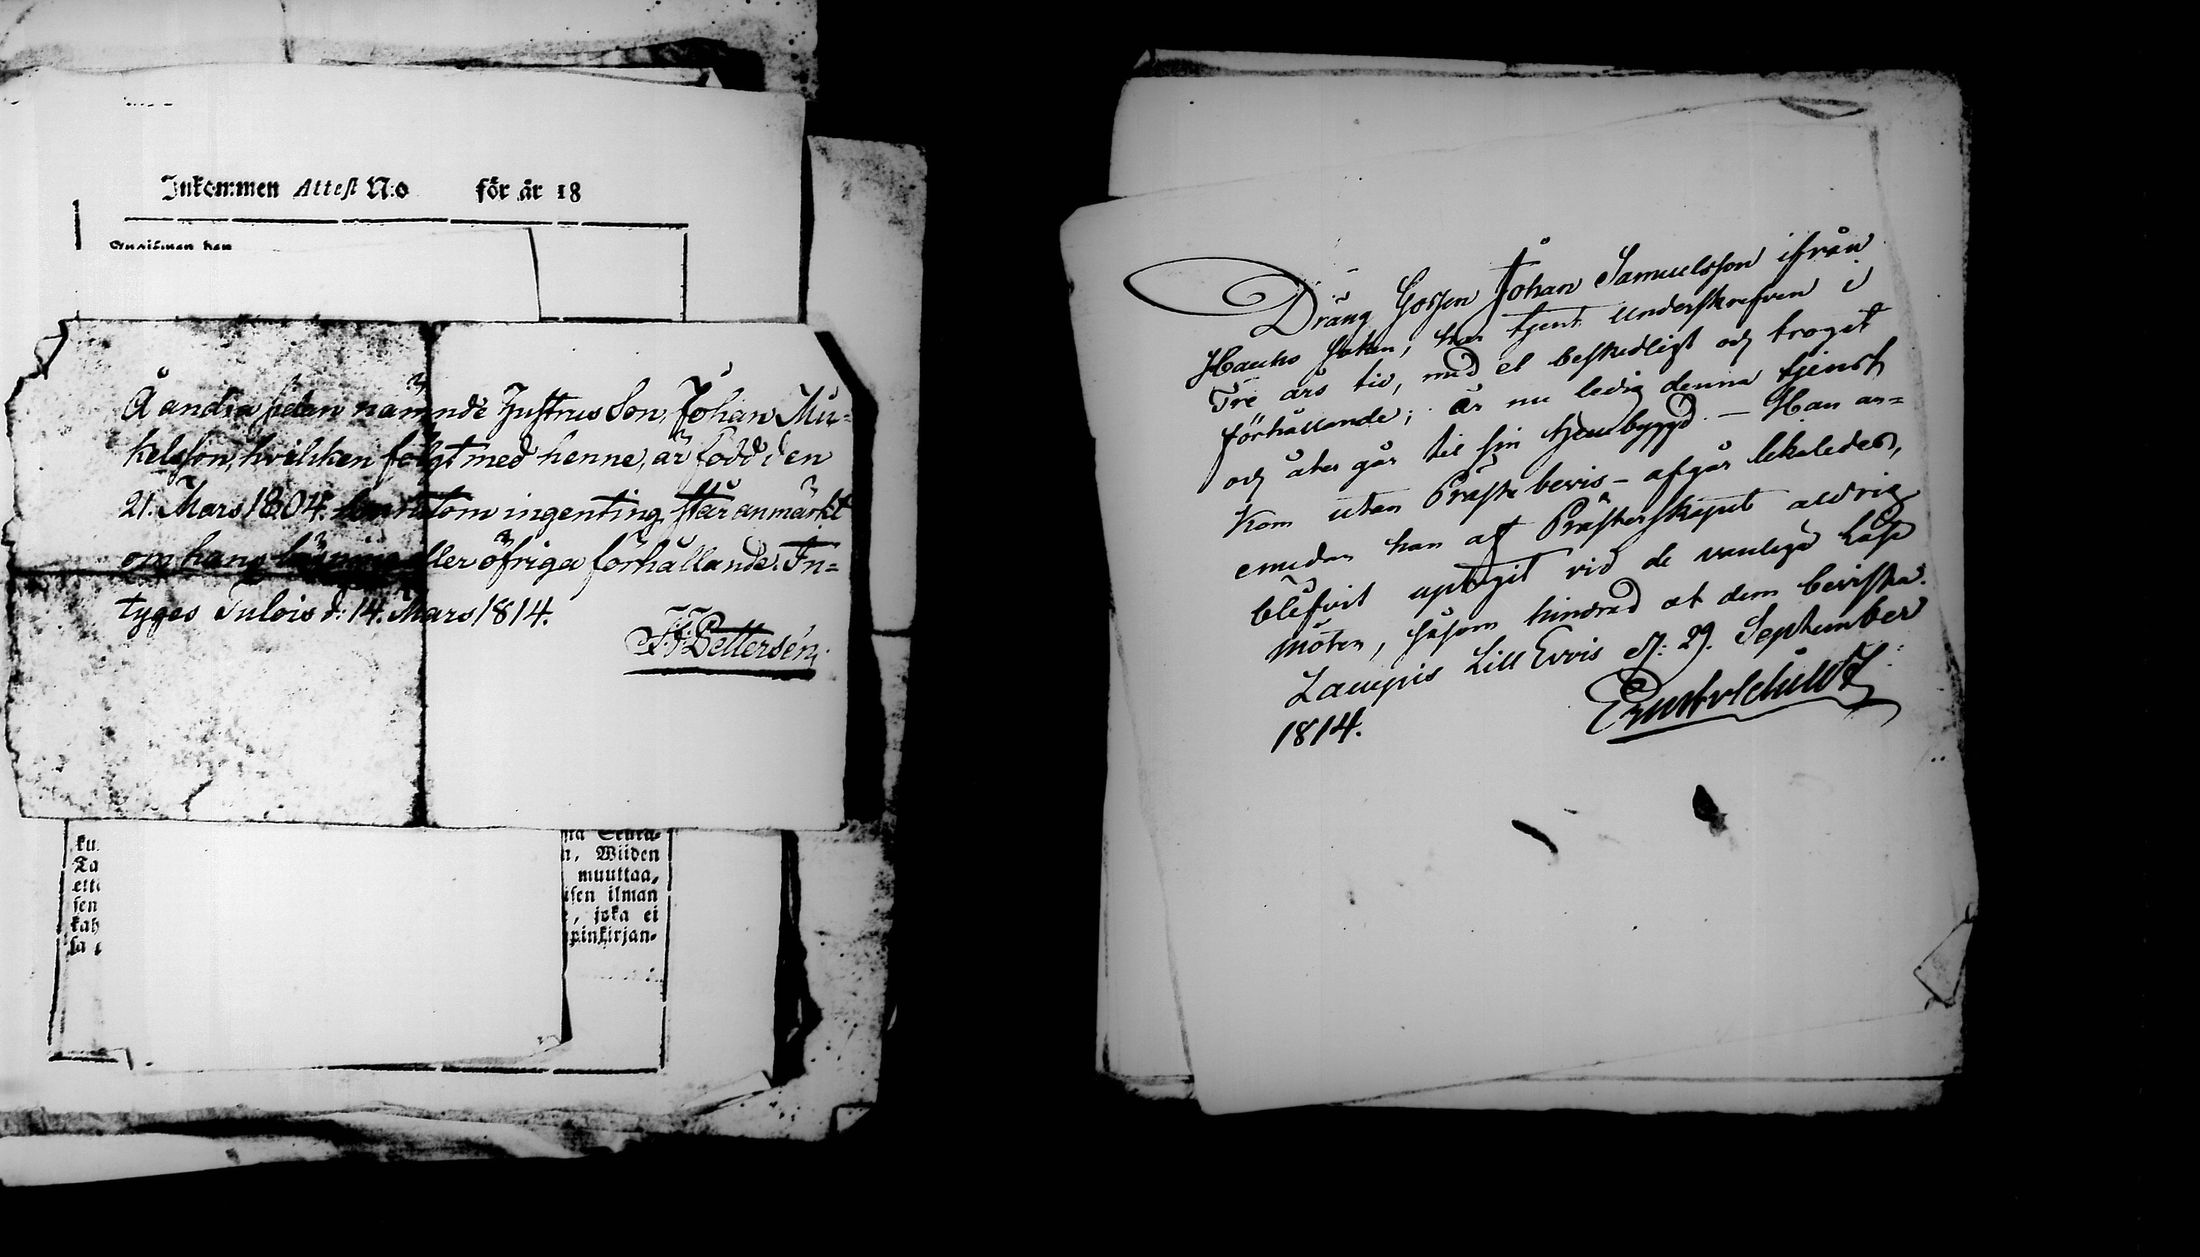 Inkommen Attest N:o för år 18
Å andra sidan nämnde Hustrus Son, Johan Mic-
kelsson, hvilken fölgt med henne, är född den
21. Mars 1804. utom ingenting står anmärkt
om hans läsning eller öfriga förhållande. In-
tyges Tulois d: 14. Mars 1814.
Pettersén.
ku
Ta
ett
sen
kah
sa
n, Wiiden
muuttaa,
isen ilman
, joka ei
pinkirjan-
Dräng Gossen Johan Samuelsson ifrån
Hauho Sokn, har tjent underskrefven i
Tre års tid, med et beskedligt och troget
förhållande; är nu ledig denna tjenst
och åter går til sin hembygd. — Han an-
kom utan Präste bevis - afgår likaledes,
emedan han af Prästerskapet aldrig
blifvit uptagit vid de vanliga Läse
möten, såsom hindrad at dem bevista.
Lampis Lill Evois d: 29. September
1814.